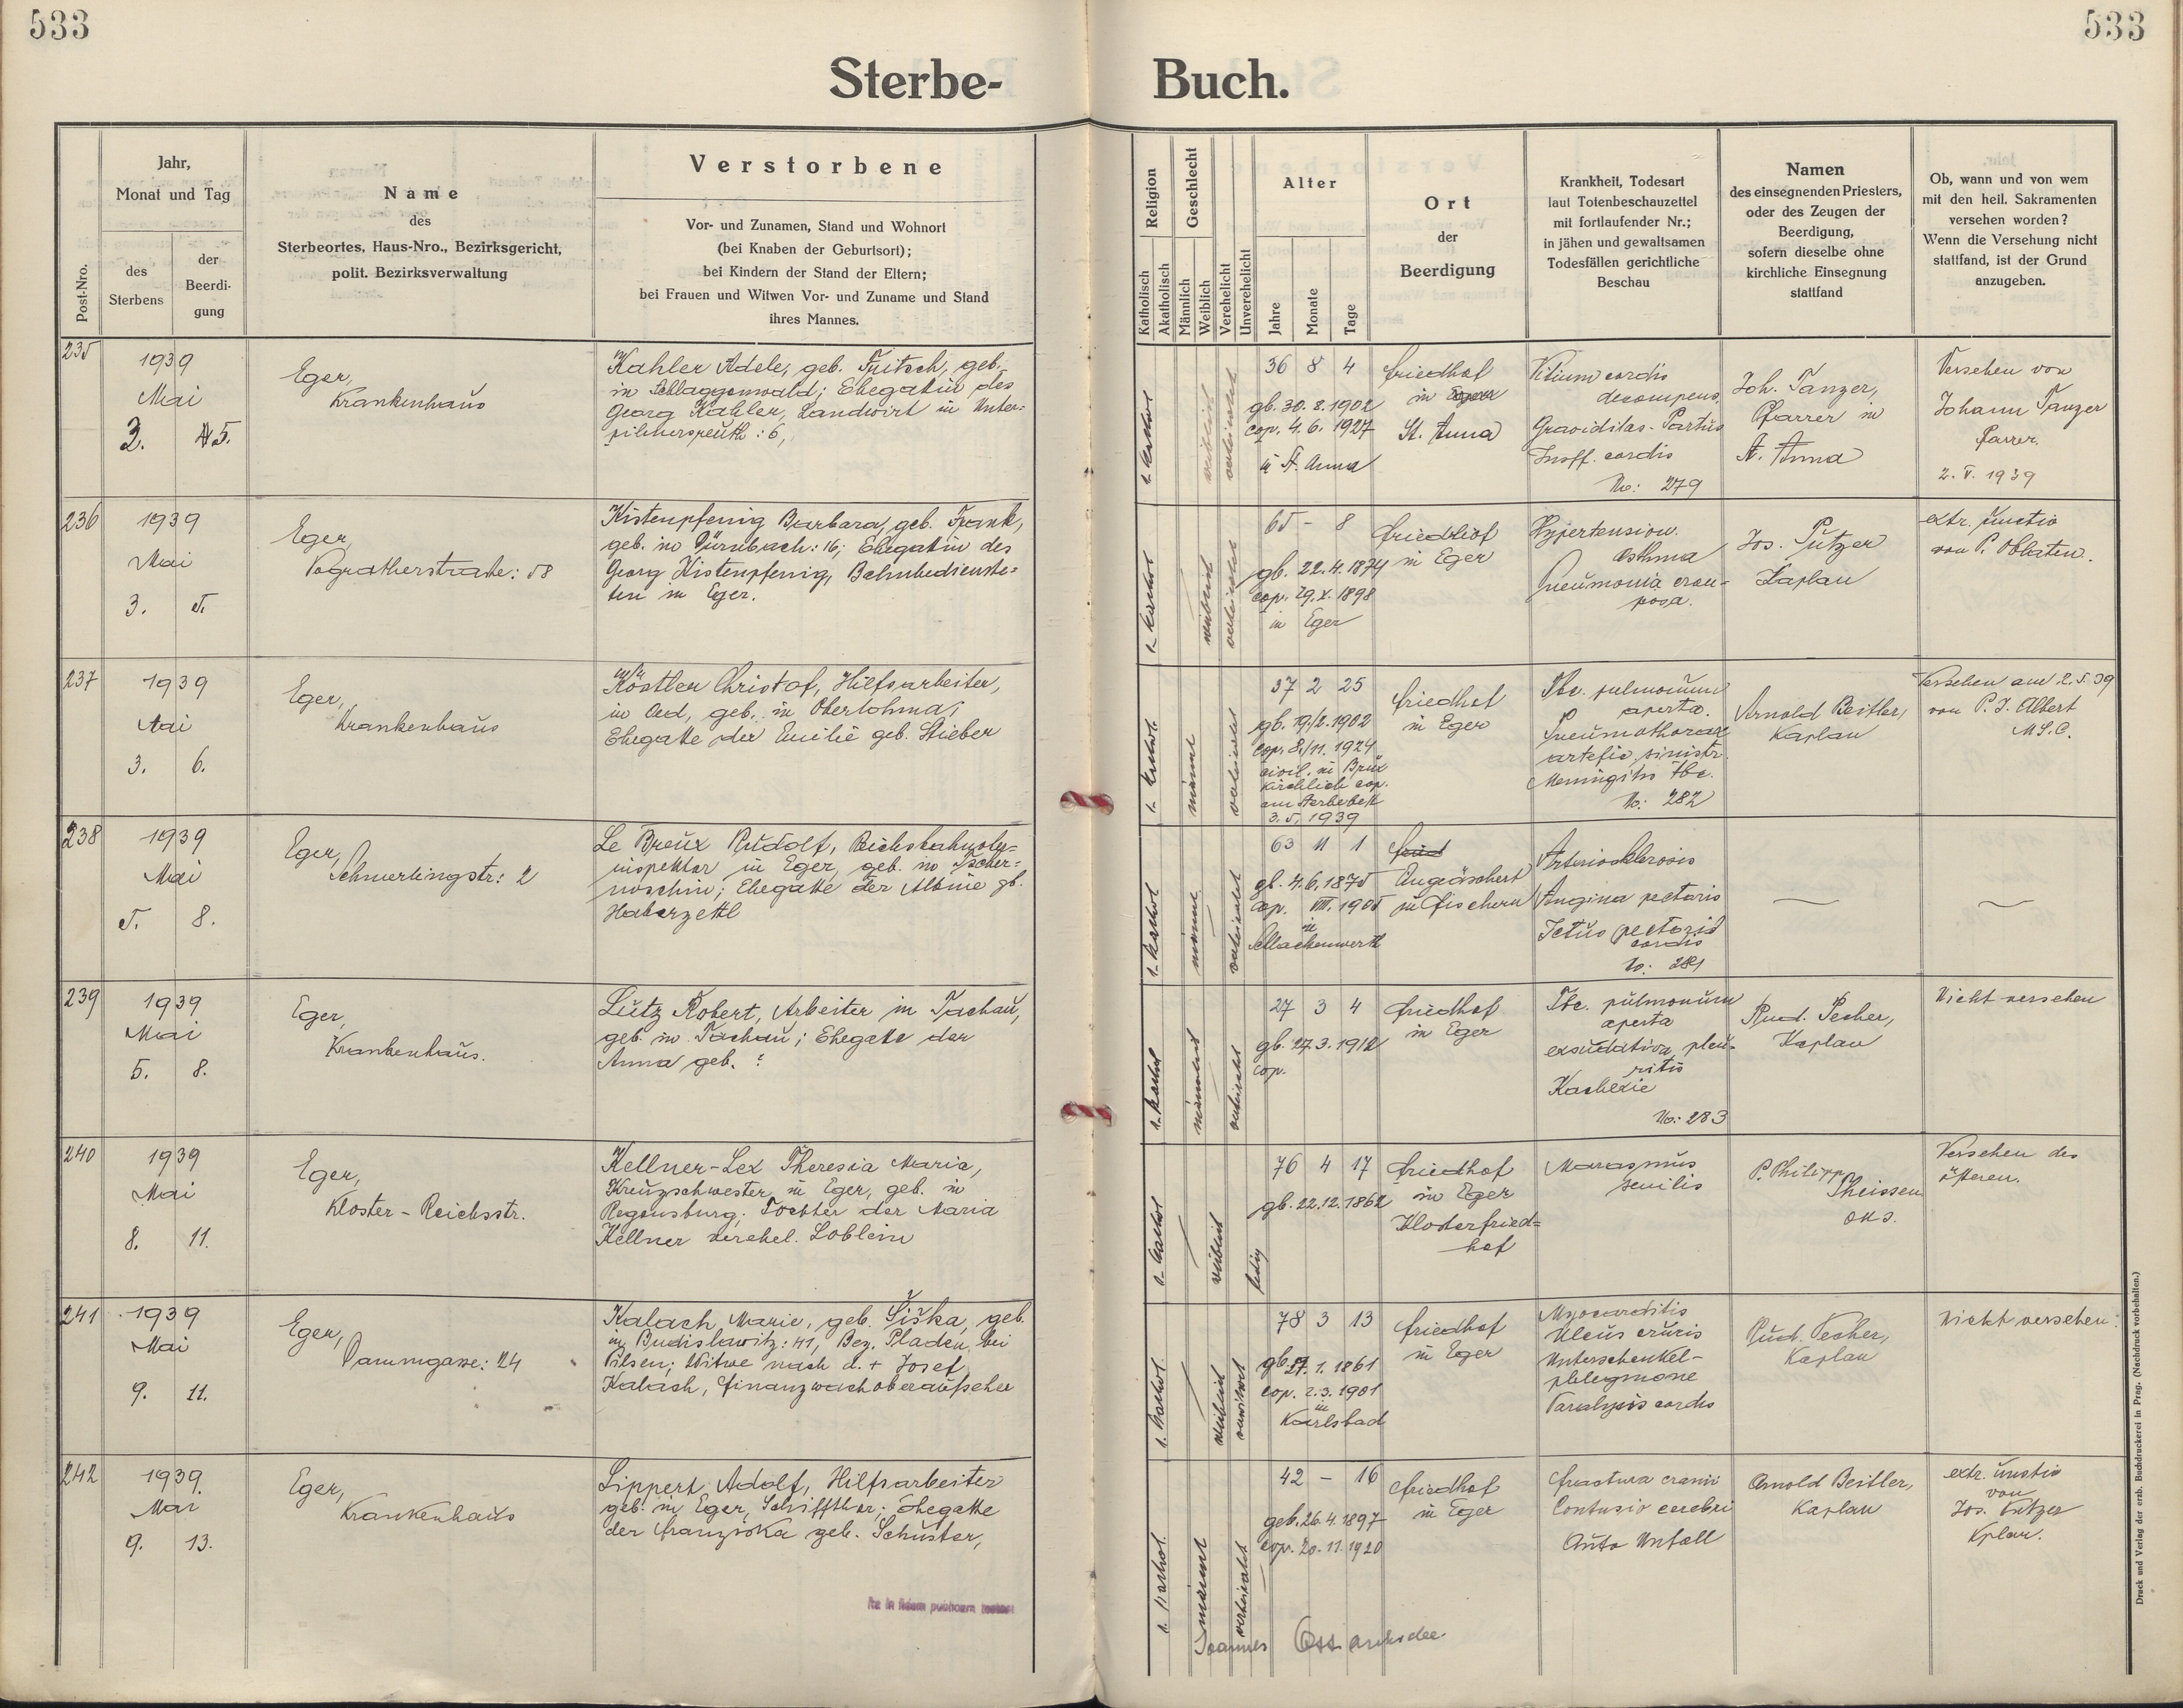 533
533
Sterbe-
Buch.
Post-Nro.
Jahr,
Monat und Tag
des
Sterbens
der
Beerdi-
gung
Name
des
Sterbeortes, Haus-Nro., Bezirksgericht,
polit. Bezirksverwaltung
Verstorbene
Vor- und Zunamen, Stand und Wohnort
(bei Knaben der Geburtsort);
bei Kindern der Stand der Eltern;
bei Frauen und Witwen Vor- und Zuname und Stand
ihres Mannes.
Religion
Katholisch
Akatholisch
Geschlecht
Männlich
Weiblich
Verehelicht
Unverehelicht
Alter
Jahre
Monate
Tage
Ort
der
Beerdigung
Krankheit, Todesart
laut Totenbeschauzettel
mit fortlaufender Nr.;
in jähen und gewaltsamen
Todesfällen gerichtliche
Beschau
Namen
des einsegnenden Priesters,
oder des Zeugen der
Beerdigung,
sofern dieselbe ohne
kirchliche Einsegnung
stattfand
Ob, wann und von wem
mit den heil. Sakramenten
versehen worden?
Wenn die Versehung nicht
stattfand, ist der Grund
anzugeben.
235
1939
Mai
2. 5.
Eger,
Krankenhaus
Kahler Adele, geb. Fritsch, geb.
in Schlaggenwald; Ehegattin des
Georg Kahler, Landwirt in Unter-
pilmersreuth: 6,
36 8 4
gb. 30. 8. 1902
cop. 4. 6. 1927
in St. Anna
Friedhof
in
St. Anna
Vitium cordis
decompens.
Graviditas - Partus
Insuff. cordis
No: 279
Joh. Tanzer,
Pfarrer in
St. Anna
Versehen von
Johann Tanzer
Pfarrer.
2. V. 1939
236
1939
Mai
3. 5.
Eger,
Pogratherstraße: 58
Kistenpfennig Barbara, geb. Frank,
geb. in Dürnbach: 16; Ehegattin des
Georg Kistenpfennig, Bahnbedienste-
ten in Eger.
65 - 8
gb. 22. 4. 1874
cop. 29. X. 1898
in Eger
Friedhof
in Eger
Hypertension.
Asthma
Pneumonia crou-
posa.
Jos. Putzer
Kaplan
extr. unctio
von P. Oblaten.
237
1939
Mai
3. 6.
Eger,
Krankenhaus
Köstler Christof, Hilfsarbeiter,
in Oed, geb. in Oberlohma;
Ehegatte der Emilie geb. Stieber
37 2 25
gb. 19/2. 1902
cop. 8./11. 1924
civil. in Brüx
kirchlich cop.
am Sterbebett
3. 5. 1939
Friedhof
in Eger
Tbc. pulmonum
aperta.
Pneumothorax
artefic. sinistr.
Meningitis tbc.
No: 282
Arnold Beitler,
Kaplan
Versehen am 2. 5. 39
von P. J. Albert
M.S.C.
238
1939
Mai
5. 8.
Eger,
Schmerlingstr: 2
Le Breux Rudolf, Reichsbahnober-
inspektor in Eger, geb. in Tscher-
noschin; Ehegatte der Albine gb.
Haberzettl
63 11 1
gb. 4. 6. 1875
cop. VIII. 1905
in
Schlackenwerth
Eingeäschert
zu Fischern
Arteriosklerosis
Angina pectoris
Ictus pectoris
cordis
No: 281
239
1939
Mai
5. 8.
Eger,
Krankenhaus.
Lutz Robert, Arbeiter in Tachau,
geb. in Tachau; Ehegatte der
Anna geb. ?
27 3 4
gb. 27. 3. 1912
cop.
Friedhof
in Eger
Tbc. pulmonum
aperta
exsudativa, pleu-
ritis
Kachexie
No: 283
Rud. Pecher,
Kaplan
Nicht versehen
240
1939
Mai
8. 11.
Eger,
Kloster - Reichsstr.
Kellner-Lex Theresia Maria,
Kreuzschwester in Eger, geb. in
Regensburg; Tochter der Maria
Kellner verehel. Loblein
ledig
76 4 17
gb. 22. 12. 1862
Friedhof
in Eger
Klosterfried-
hof
Marasmus
senilis
P. Philipp
Theissen
Versehen des
öfteren.
241
1939
Mai
9. 11.
Eger,
Dammgasse: 24
Kalach Marie, geb. Šiška, geb.
in Budislawitz: 41, Bez. Pladen, bei
Pilsen; Witwe nach d. + Josef
Kalach, Finanzwachoberaufseher
78 3 13
gb. 27. 1. 1861
cop. 2. 3. 1901
in
Karlsbad
Friedhof
in Eger
Myocarditis
Ulcus cruris
Unterschenkel-
phlegmone
Paralysis cordis
Rud. Pecher,
Kaplan
Nicht versehen.
242
1939.
Mai
9. 13.
Eger,
Krankenhaus
Lippert Adolf, Hilfsarbeiter
geb. in Eger, Schiffthor; Ehegatte
der Franziska geb. Schuster,
42 - 16
geb. 26. 4. 1897
cop. 20. 11. 1920
Friedhof
in Eger
Fractura cranii
Contusio cerebri
Auto Unfall
Arnold Beitler,
Kaplan
extr. unctio
von
Jos. Putzer
Kplan.
Joannes
Druck und Verlag der erzb. Buchdruckerei in Prag. (Nachdruck vorbehalten.)